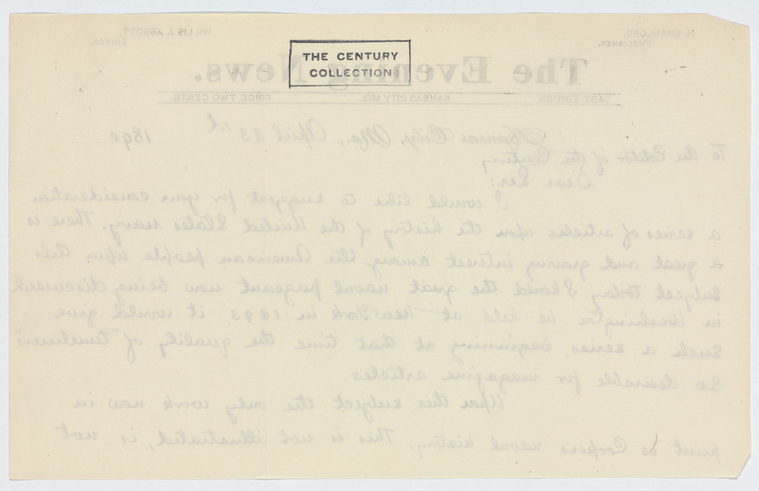 THE CENTURY
COLLECTION
WILLIS J. ABBOTT,
EDITOR.
PUBLISHER.
The Evening News.
LAST EDITION.
KANSAS CITY, MO.
PRICE TWO CENTS.
Kansas City, Mo., April 23 1890
To the Editor of the Century
Dear Sir:
I would like to suggest for your consideration
a series of articles upon the history of the United States navy. There is
a great and growing interest among the American people upon this
subject today. Should the great naval pageant now being discussed
in Washington be held at New York in 1893, it would give
such a series, beginning at that time the quality of "timeliness"
so desirable for magazine articles.
Upon this subject the only work now in
print is Cooper's naval history. This is not illustrated, is not